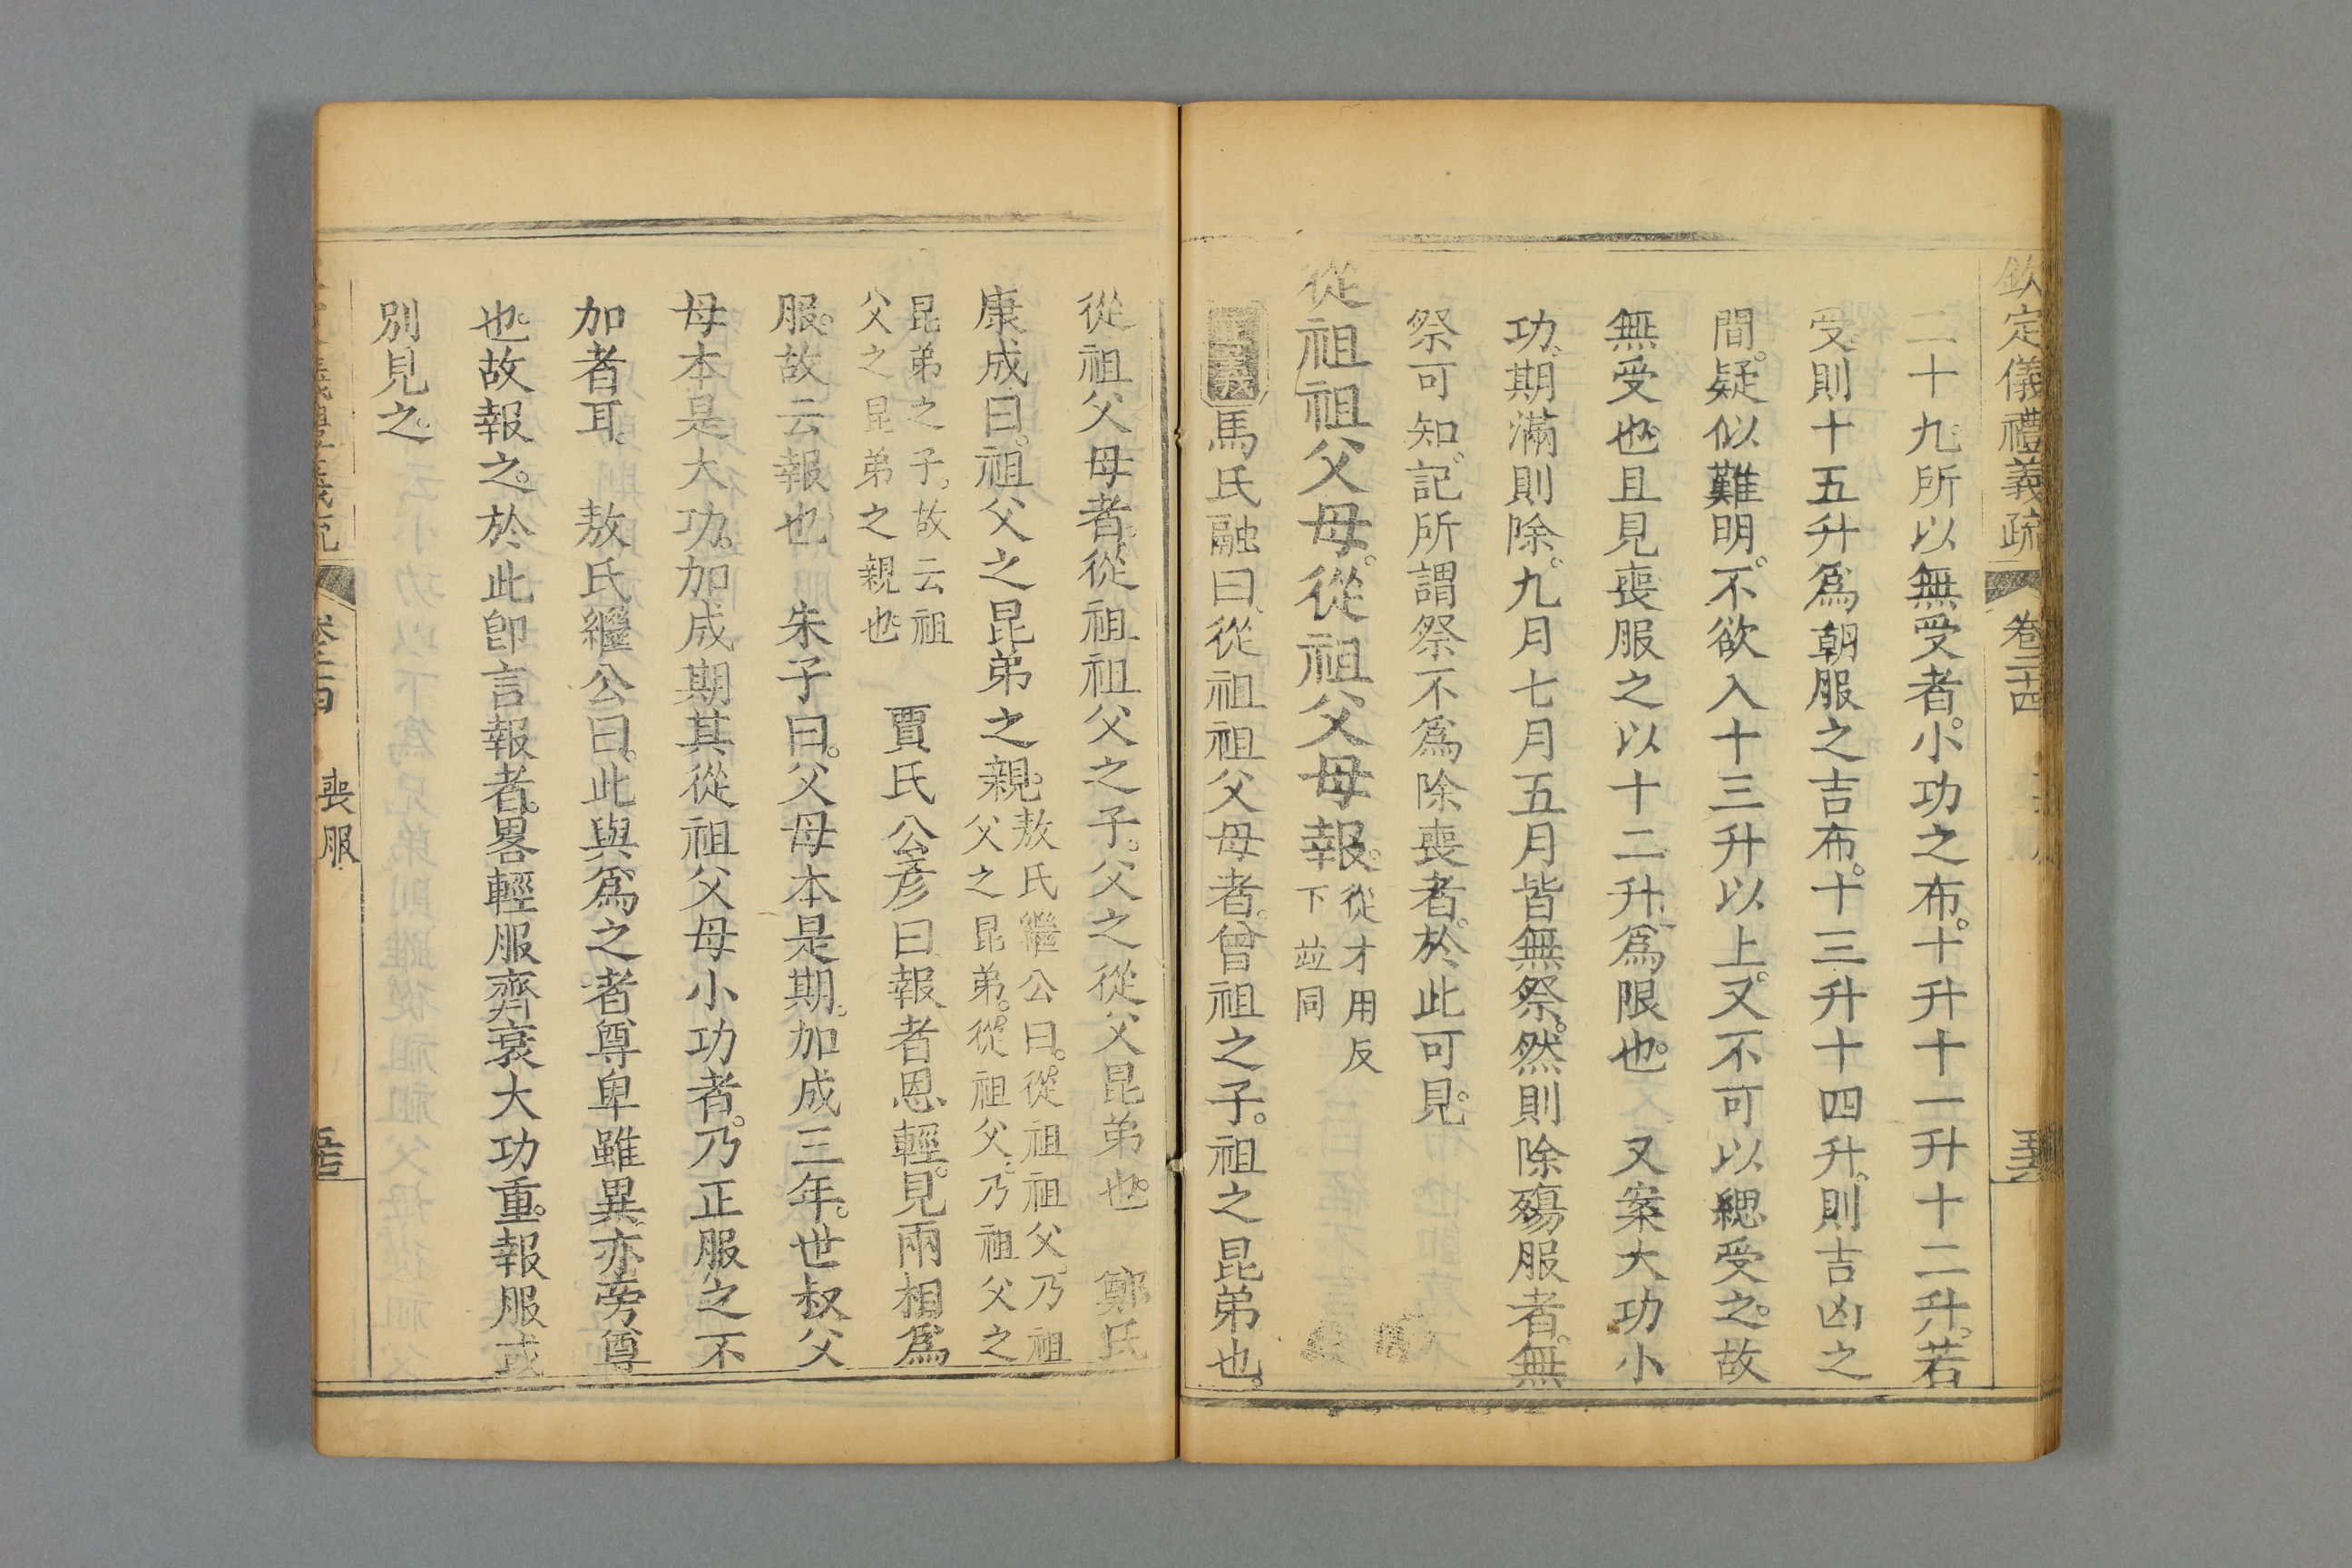 欽定儀禮義疏 卷二十四
二十九。所以無受者。小功之布。十升十一升十二升。若
受則十五升爲朝服之吉布。十三升十四升。則吉凶之
間。疑似難明。不欲入十三升以上。又不可以緦受之。故
無受也。且見喪服之以十二升爲限也。 又案大功小
功。期滿則除。九月七月五月皆無祭。然則除殤服者。無
祭可知。記所謂祭不爲除喪者。於此可見。
從祖祖父母。從祖父母報。
從才用反
下竝同
馬氏融曰。從祖祖父母者。曾祖之子。祖之昆弟也。
從祖父母者。從祖祖父之子。父之從父昆弟也。 鄭氏
康成曰。祖父之昆弟之親。
敖氏繼公曰。從祖祖父。乃祖
父之昆弟。從祖父。乃祖父之
昆弟之子。故云祖
父之昆弟之親也。
賈氏公彥曰報者恩輕。見兩相爲
服。故云報也。 朱子曰。父母本是期。加成三年。世叔父
母本是大功。加成期其從祖父母小功者。乃正服之不
加者耳。 敖氏繼公曰。此與爲之者尊卑雖異。亦旁尊
也。故報之。於此卽言報者。畧輕服齊衰大功重。報服或
別見之。
喪服